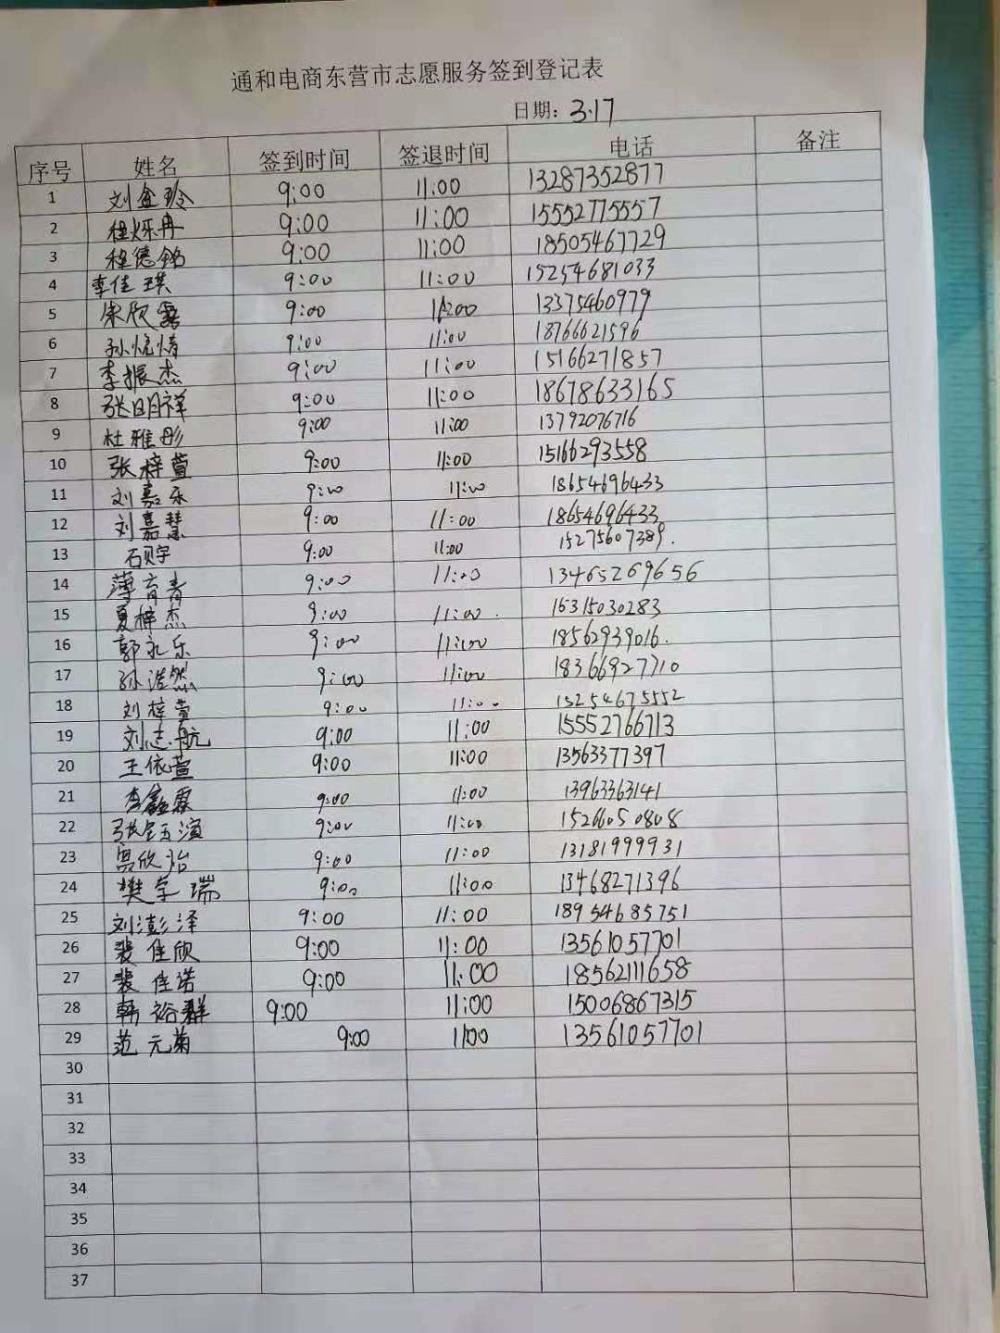 通和电商东营市志愿服务签到登记表
日期: 3.17
序号 姓名 签到时间 签退时间 电话 备注
1 刘金玲 9:00 11:00 13287352877
2 程烁冉 9:00 11:00 15552775557
3 程德铭 9:00 11:00 18505467729
4 李佳琪 9:00 11:00 15254681033
5 宋欣露 9:00 11:00 13375460979
6 9:00 11:00 18766621596
7 李振杰 9:00 11:00 15166271857
8 张明祥 9:00 11:00 18678633165
9 杜雅彤 9:00 11:00 13792076716
10 张梓萱 9:00 11:00 15166293558
11 刘嘉乐 9:00 11:00 18654696433
12 刘嘉慧 9:00 11:00 18654696433
13 9:00 11:00 15275607389.
14 薄育青 9:00 11:00 13465269656
15 夏梓杰 9:00 11:00. 15315030283
16 郭永乐 9:00 11:00 18562939016.
17 孙浩然 9:00 11:00 18366927710
18 刘梓萱 9:00 11:00 15254675552
19 刘志航 9:00 11:00 15552766713
20 王依萱 9:00 11:00 13563377397
21 李鑫霖 9:00 11:00 13963363141
22 9:00 11:00 15266050808
23 9:00 11:00 13181999931
24 樊学瑞 9:00 11:00 13468271396
25 刘澎泽 9:00 11:00 18954685751
26 裴佳欣 9:00 11:00 13561057701
27 裴佳诺 9:00 11:00 18562111658
28 韩裕群 9:00 11:00 15006867315
29 范元菊 9:00 11:00 13561057701
30
31
32
33
34
35
36
37